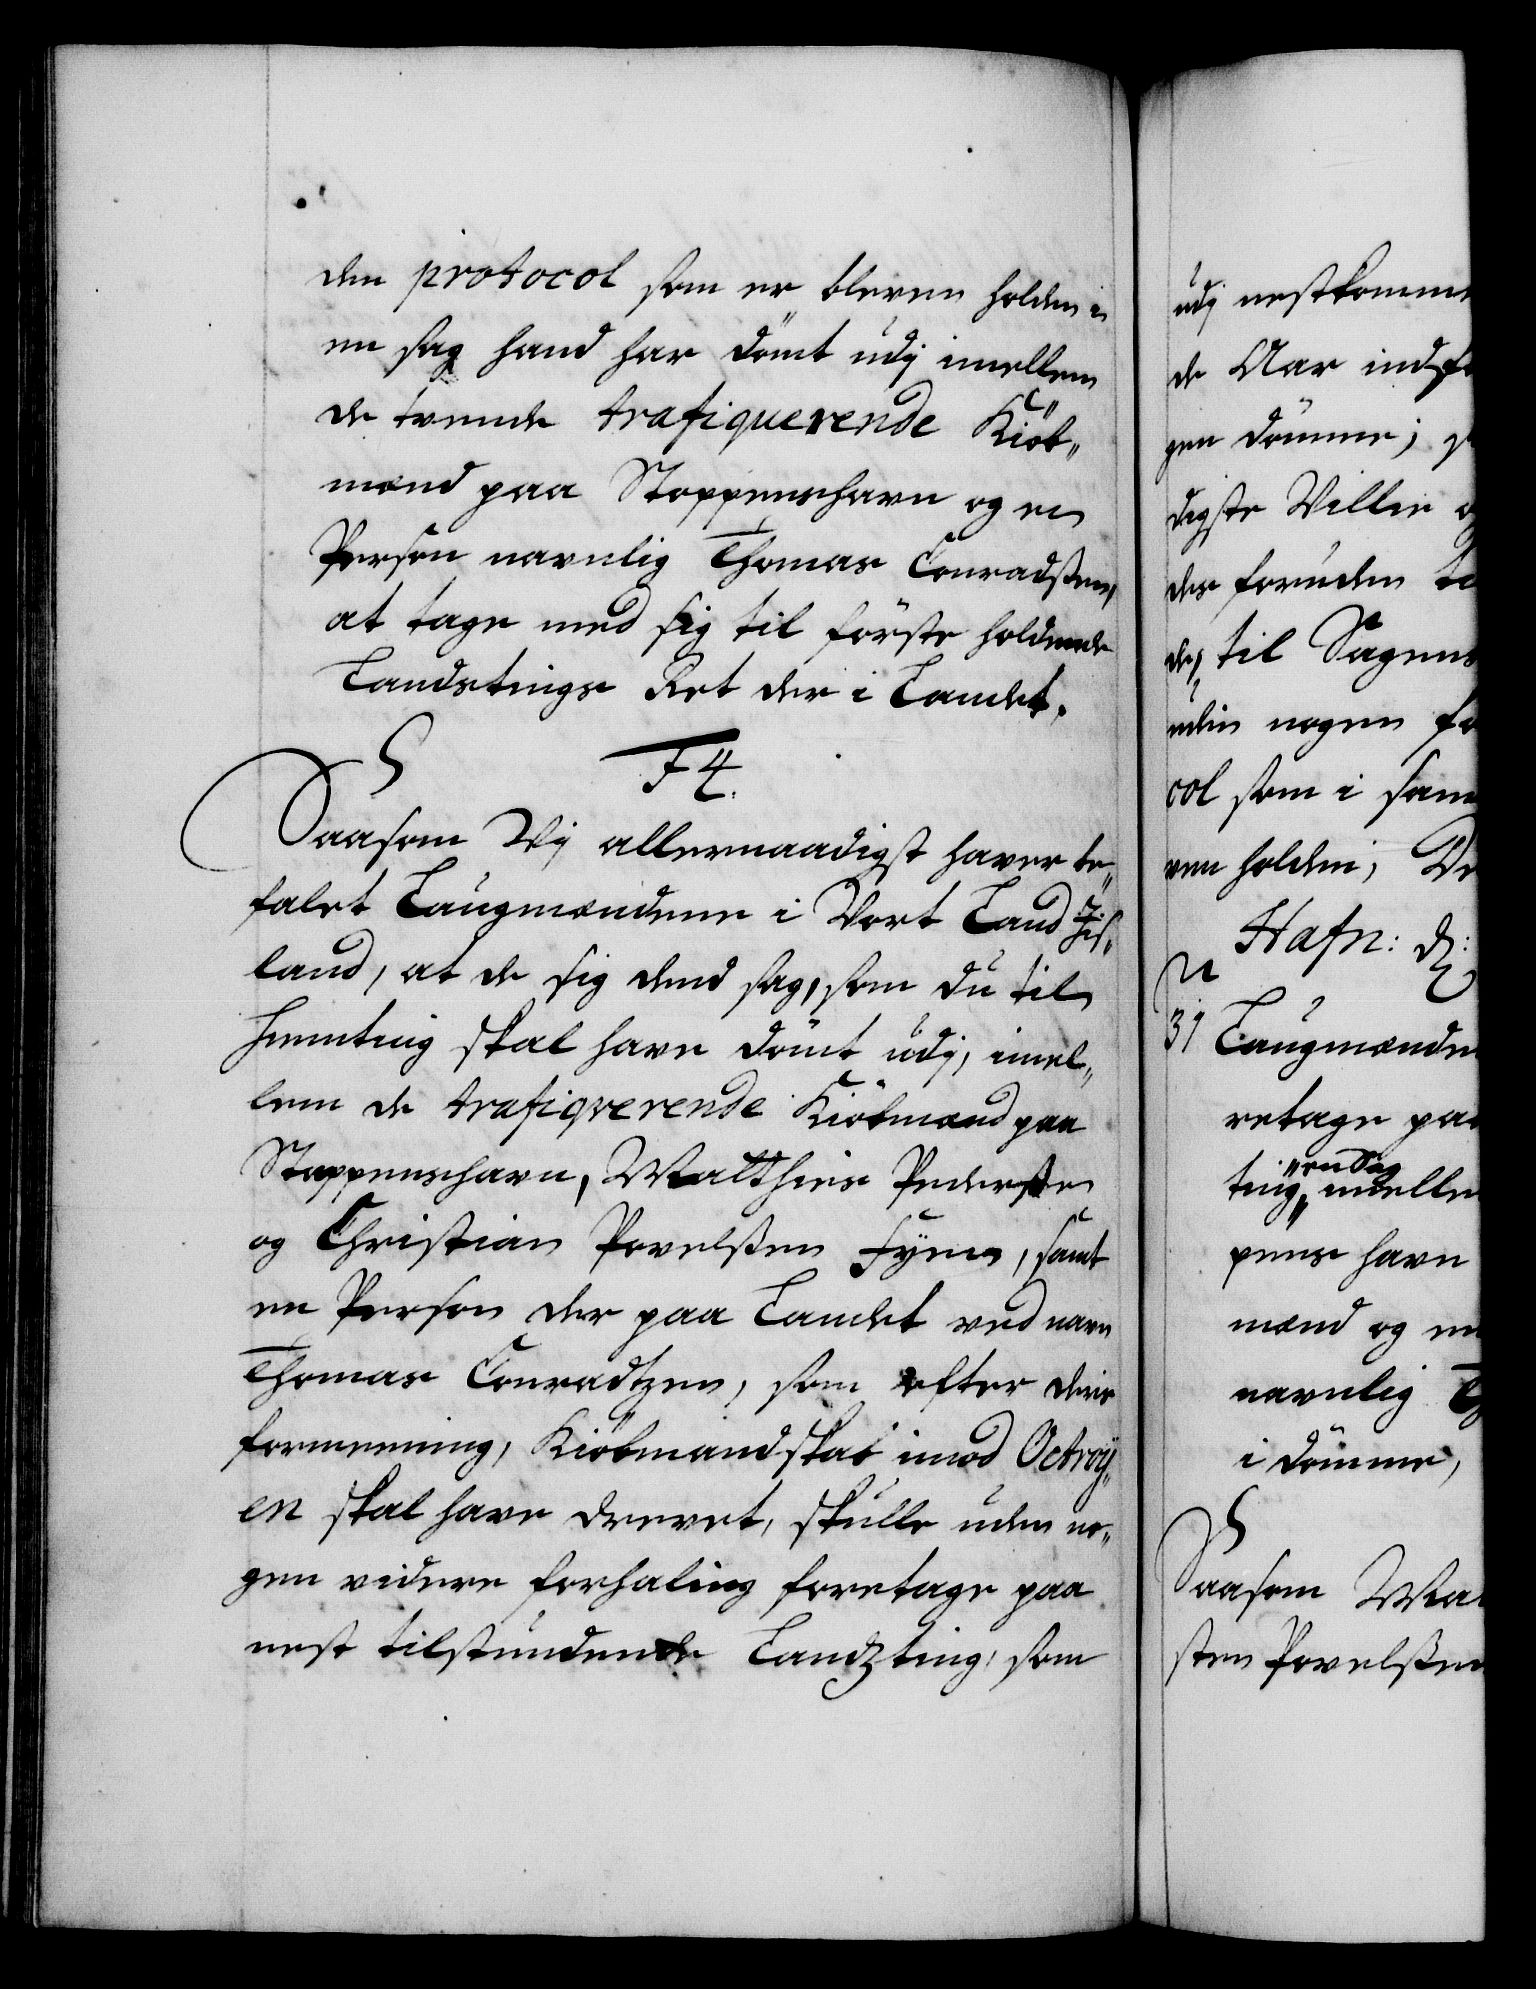 den protocol som er bleven holden i
en sag hand har dömt udj imellem
de tvende trafiquerende Kiöb„
mænd paa Stappenshavn og en
Person navnlig Thomas Conradßen,
at tage med sig til förste holdende
Landstings Ret der i Landet.
F4.
Saasom Vij allernaadigst haver be„
falet Laugmændene i Vort Land Jis„
land, at de sig dend sag, som du til
hiemting skal have dömt udj, imel„
lem de trafiqverende Kiöbmænd paa
Stappenshavn, Matthias Pederßen
og Christian Povelßen Fyen, samt
en Person der paa Landet ved navn
Thomas Conradtzen, som efter deris
formeening, Kiöbmandskab imod Octroy„
en skal have drevet, skulle uden no„
gen videre forhaling foretage paa
nest tilstundende Landzting, som
udj nestkomme
de Aar indf
gen dömme;
digste Villie
des foruden
de, til Sagens
uden nogen
col som i sam
ven holden,
Hafn: d:
N
31 Laugmænden
retage paa
en Sag
ting, imellem
pens havn
mænd og en
navnlig
i dömme,
Saasom Mat
sten Povelßen